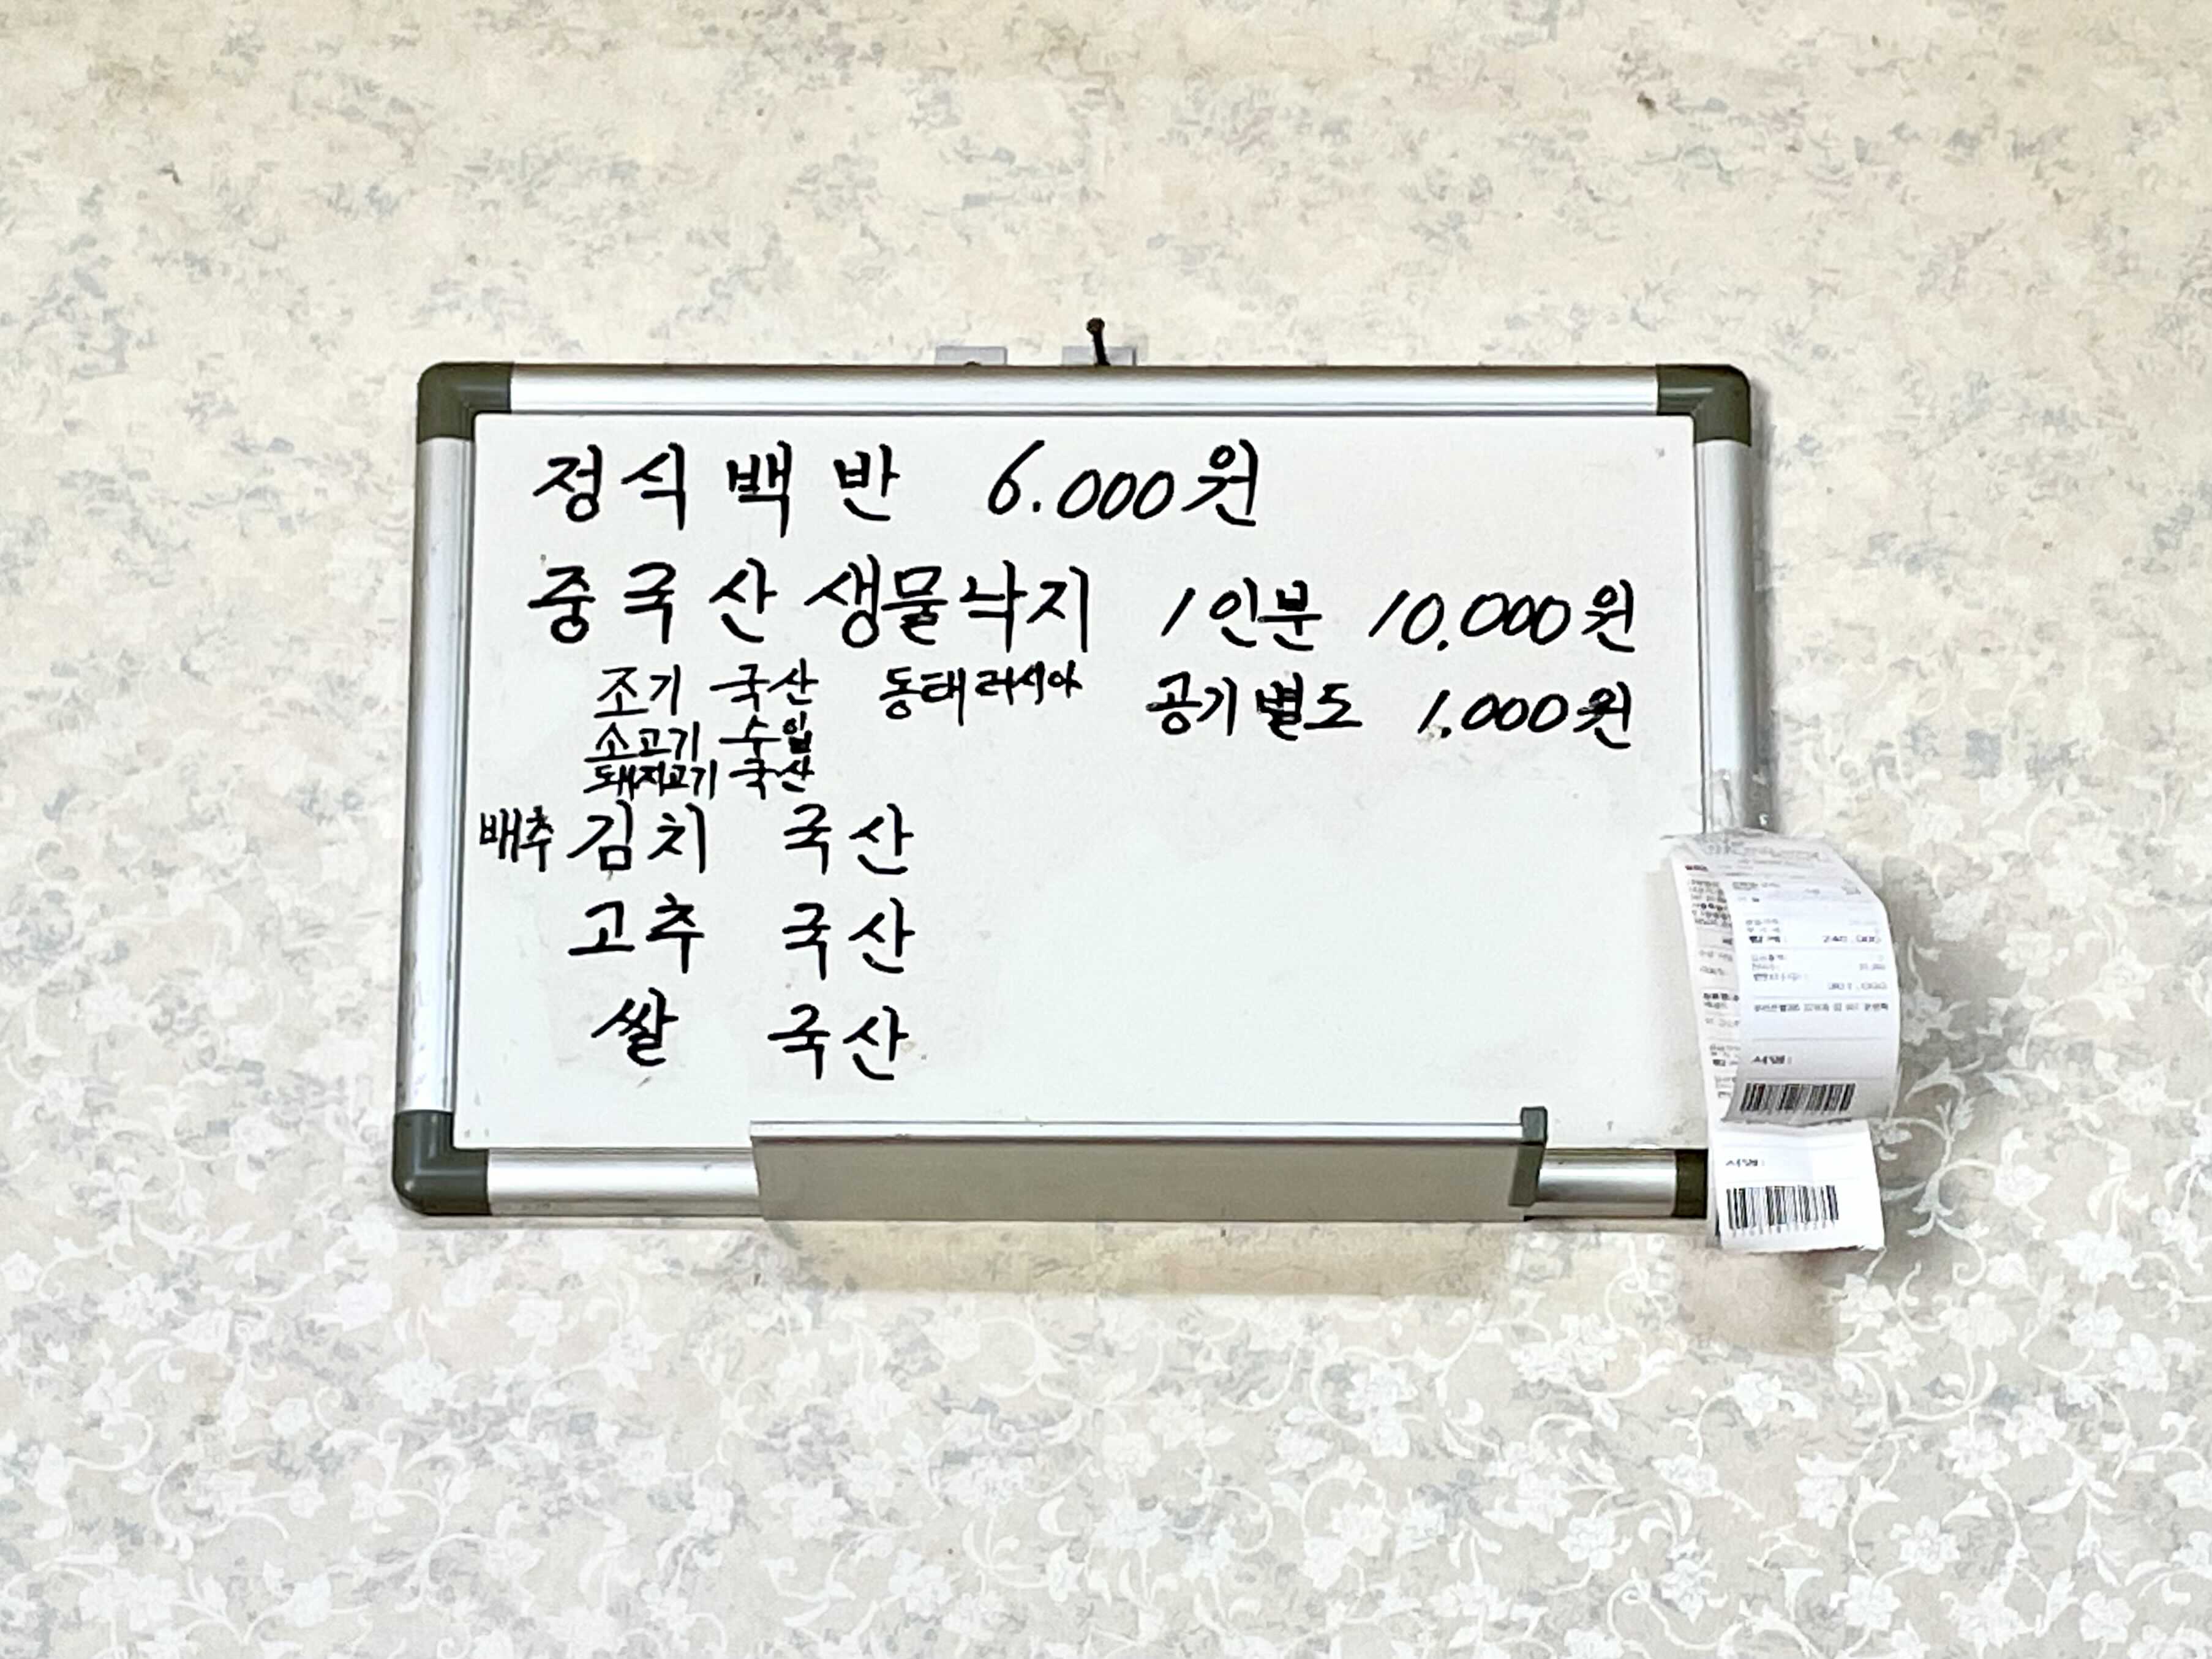 정식백반 6.000원
중국산 생물낙지 1인분 10.000원
조기 국산 동태 러시아 공기별도 1.000원
소고기 수입
돼지고기 국산
배추김치 국산
고추 국산
쌀 국산
서명:
서명: